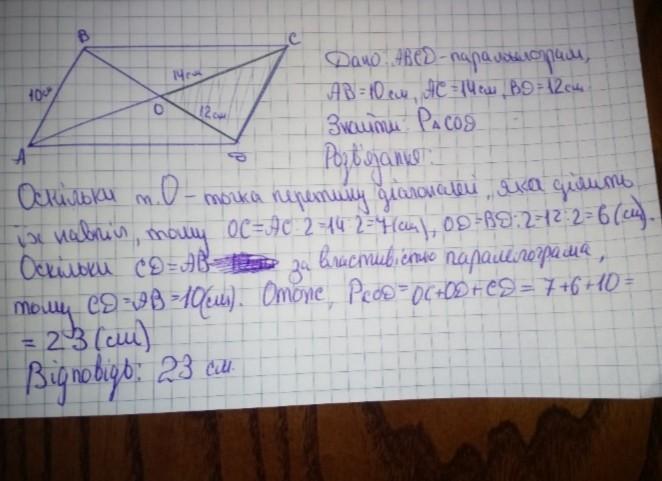 B
C
14см
10см
O
12см
A
D
Дано: ABCD-паралелограм,
AB=10см, AC=14см, BD=12см
Знайти: P△COD
Розв'язання:
Оскільки т.O - точка перетину діагоналей, яка ділить
їх навпіл, тому OC=AC:2=14:2=7(см), OD=BD:2=12:2=6(см).
Оскільки CD=AB за властивістю паралелограма,
тому CD=AB=10(см). Отже, PCOD=OC+OD+CD=7+6+10=
=23(см)
Відповідь: 23 см.